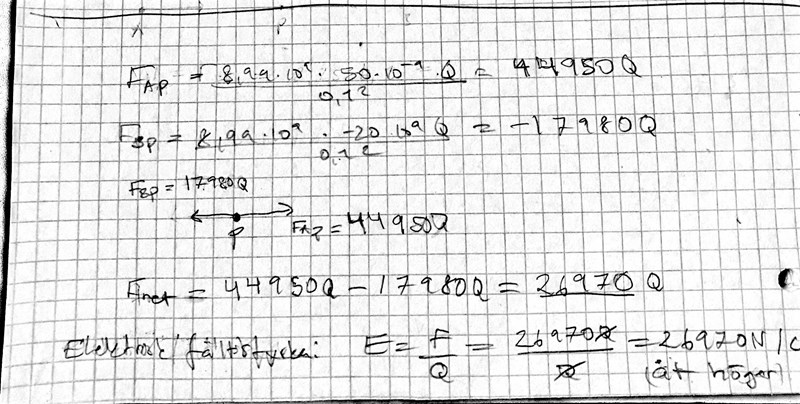 A P B
F_AP = 8,99·10⁹ · 50·10⁻⁹ ·Q / 0,1² = 44950Q
F_BP = 8,99·10⁹ · -20·10⁻⁹ Q / 0,1² = -17980Q
F_BP = 17980Q
P F_AP = 44950Q
F_net = 44950Q - 17980Q = 26970 Q
Elektrisk fältstyrka: E = F/Q = 26970Q/Q = 26970N/C
(åt höger)